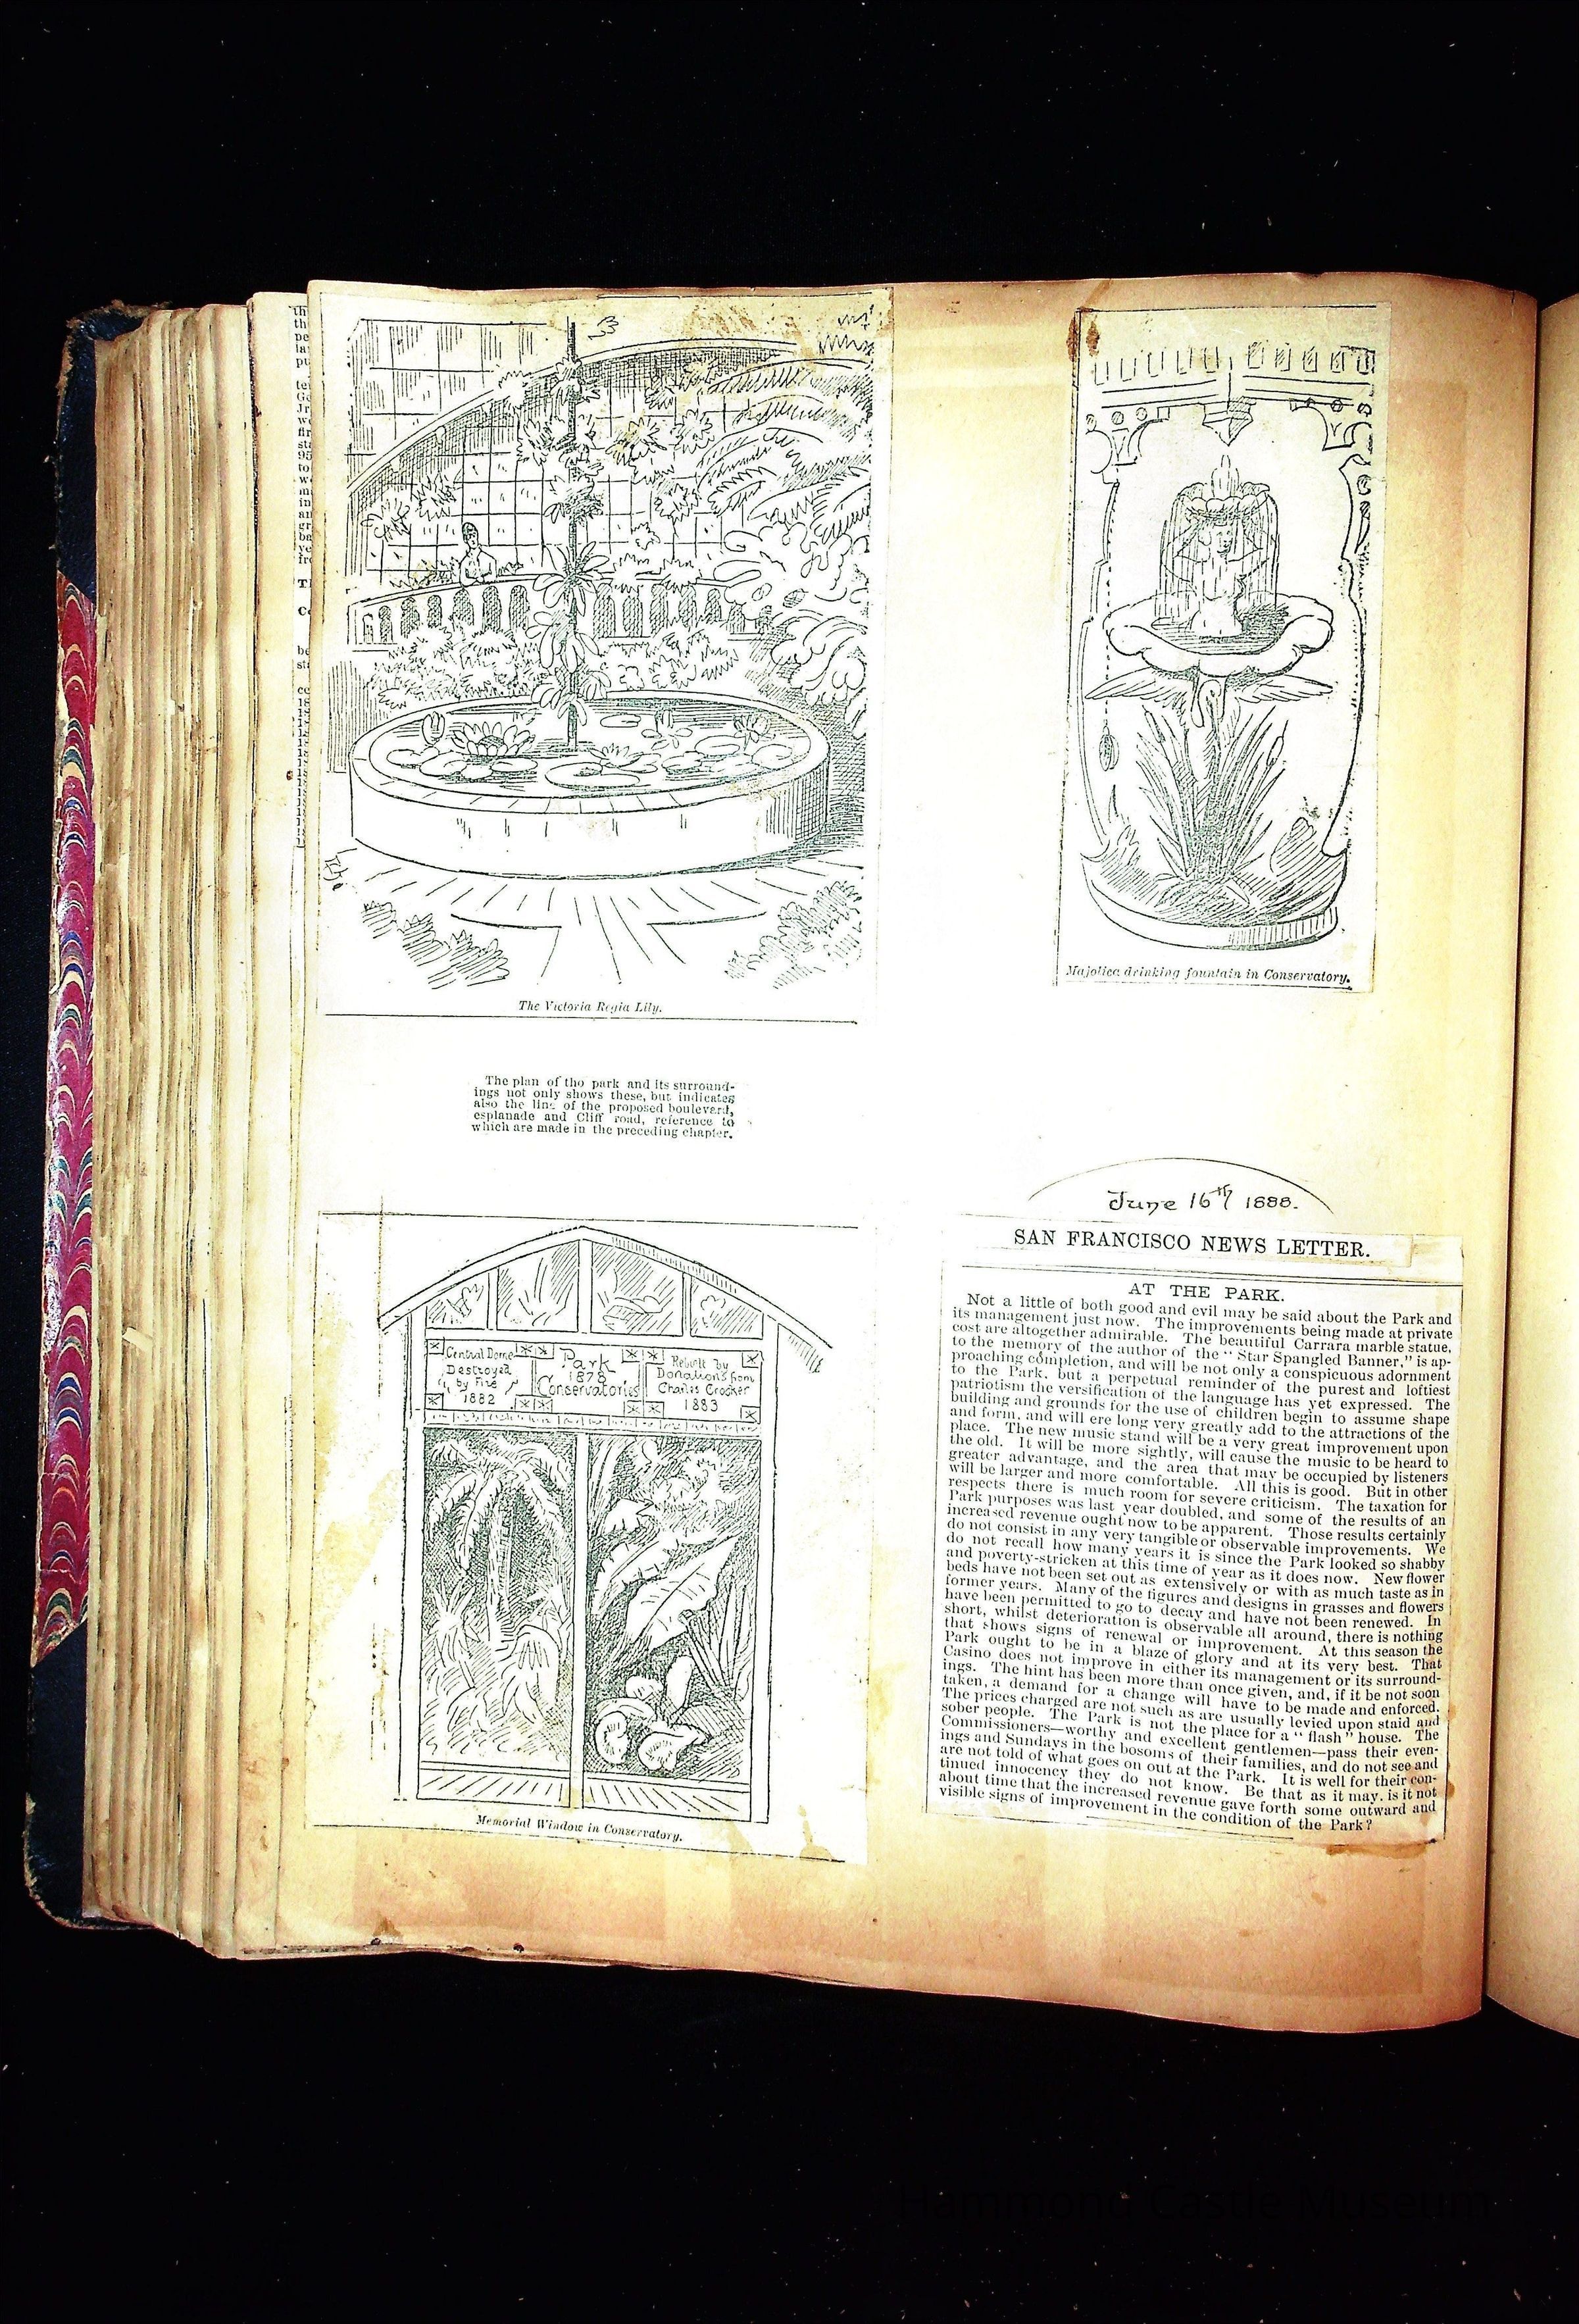 The Victoria Regia Lily.
The plan of tho park and its surround-
ings not only shows these, but indicates
also the line of the proposed boulevard,
esplanade and Cliff road, reference to
which are made in the preceding chapter.
Central Dome
Destroyed
by Fire
1882
Park
1878
Conservatories
Rebuilt by
Donations from
Charles Crocker
1883
Memorial Window in Conservatory.
Majolica drinking fountain in Conservatory.
June 16th 1888.
SAN FRANCISCO NEWS LETTER.
AT THE PARK.
Not a little of both good and evil may be said about the Park and
its management just now. The improvements being made at private
cost are altogether admirable. The beautiful Carrara marble statue,
to the memory of the author of the "Star Spangled Banner," is ap-
proaching completion, and will be not only a conspicuous adornment
to the Park, but a perpetual reminder of the purest and loftiest
patriotism the versification of the language has yet expressed. The
building and grounds for the use of children begin to assume shape
and form, and will ere long very greatly add to the attractions of the
place. The new music stand will be a very great improvement upon
the old. It will be more sightly, will cause the music to be heard to
greater advantage, and the area that may be occupied by listeners
will be larger and more comfortable. All this is good. But in other
respects there is much room for severe criticism. The taxation for
Park purposes was last year doubled, and some of the results of an
increased revenue ought now to be apparent. Those results certainly
do not consist in any very tangible or observable improvements. We
do not recall how many years it is since the Park looked so shabby
and poverty-stricken at this time of year as it does now. New flower
beds have not been set out as extensively or with as much taste as in
former years. Many of the figures and designs in grasses and flowers
have been permitted to go to decay and have not been renewed. In
short, whilst deterioration is observable all around, there is nothing
that shows signs of renewal or improvement. At this season the
Park ought to be in a blaze of glory and at its very best. That
Casino does not improve in either its management or its surround-
ings. The hint has been more than once given, and, if it be not soon
taken, a demand for a change will have to be made and enforced.
The prices charged are not such as are usually levied upon staid and
sober people. The Park is not the place for a "flash" house. The
Commissioners—worthy and excellent gentlemen—pass their even-
ings and Sundays in the bosoms of their families, and do not see and
are not told of what goes on out at the Park. It is well for their con-
tinued innocency they do not know. Be that as it may, is it not
about time that the increased revenue gave forth some outward and
visible signs of improvement in the condition of the Park?
Hammond Castle Museum